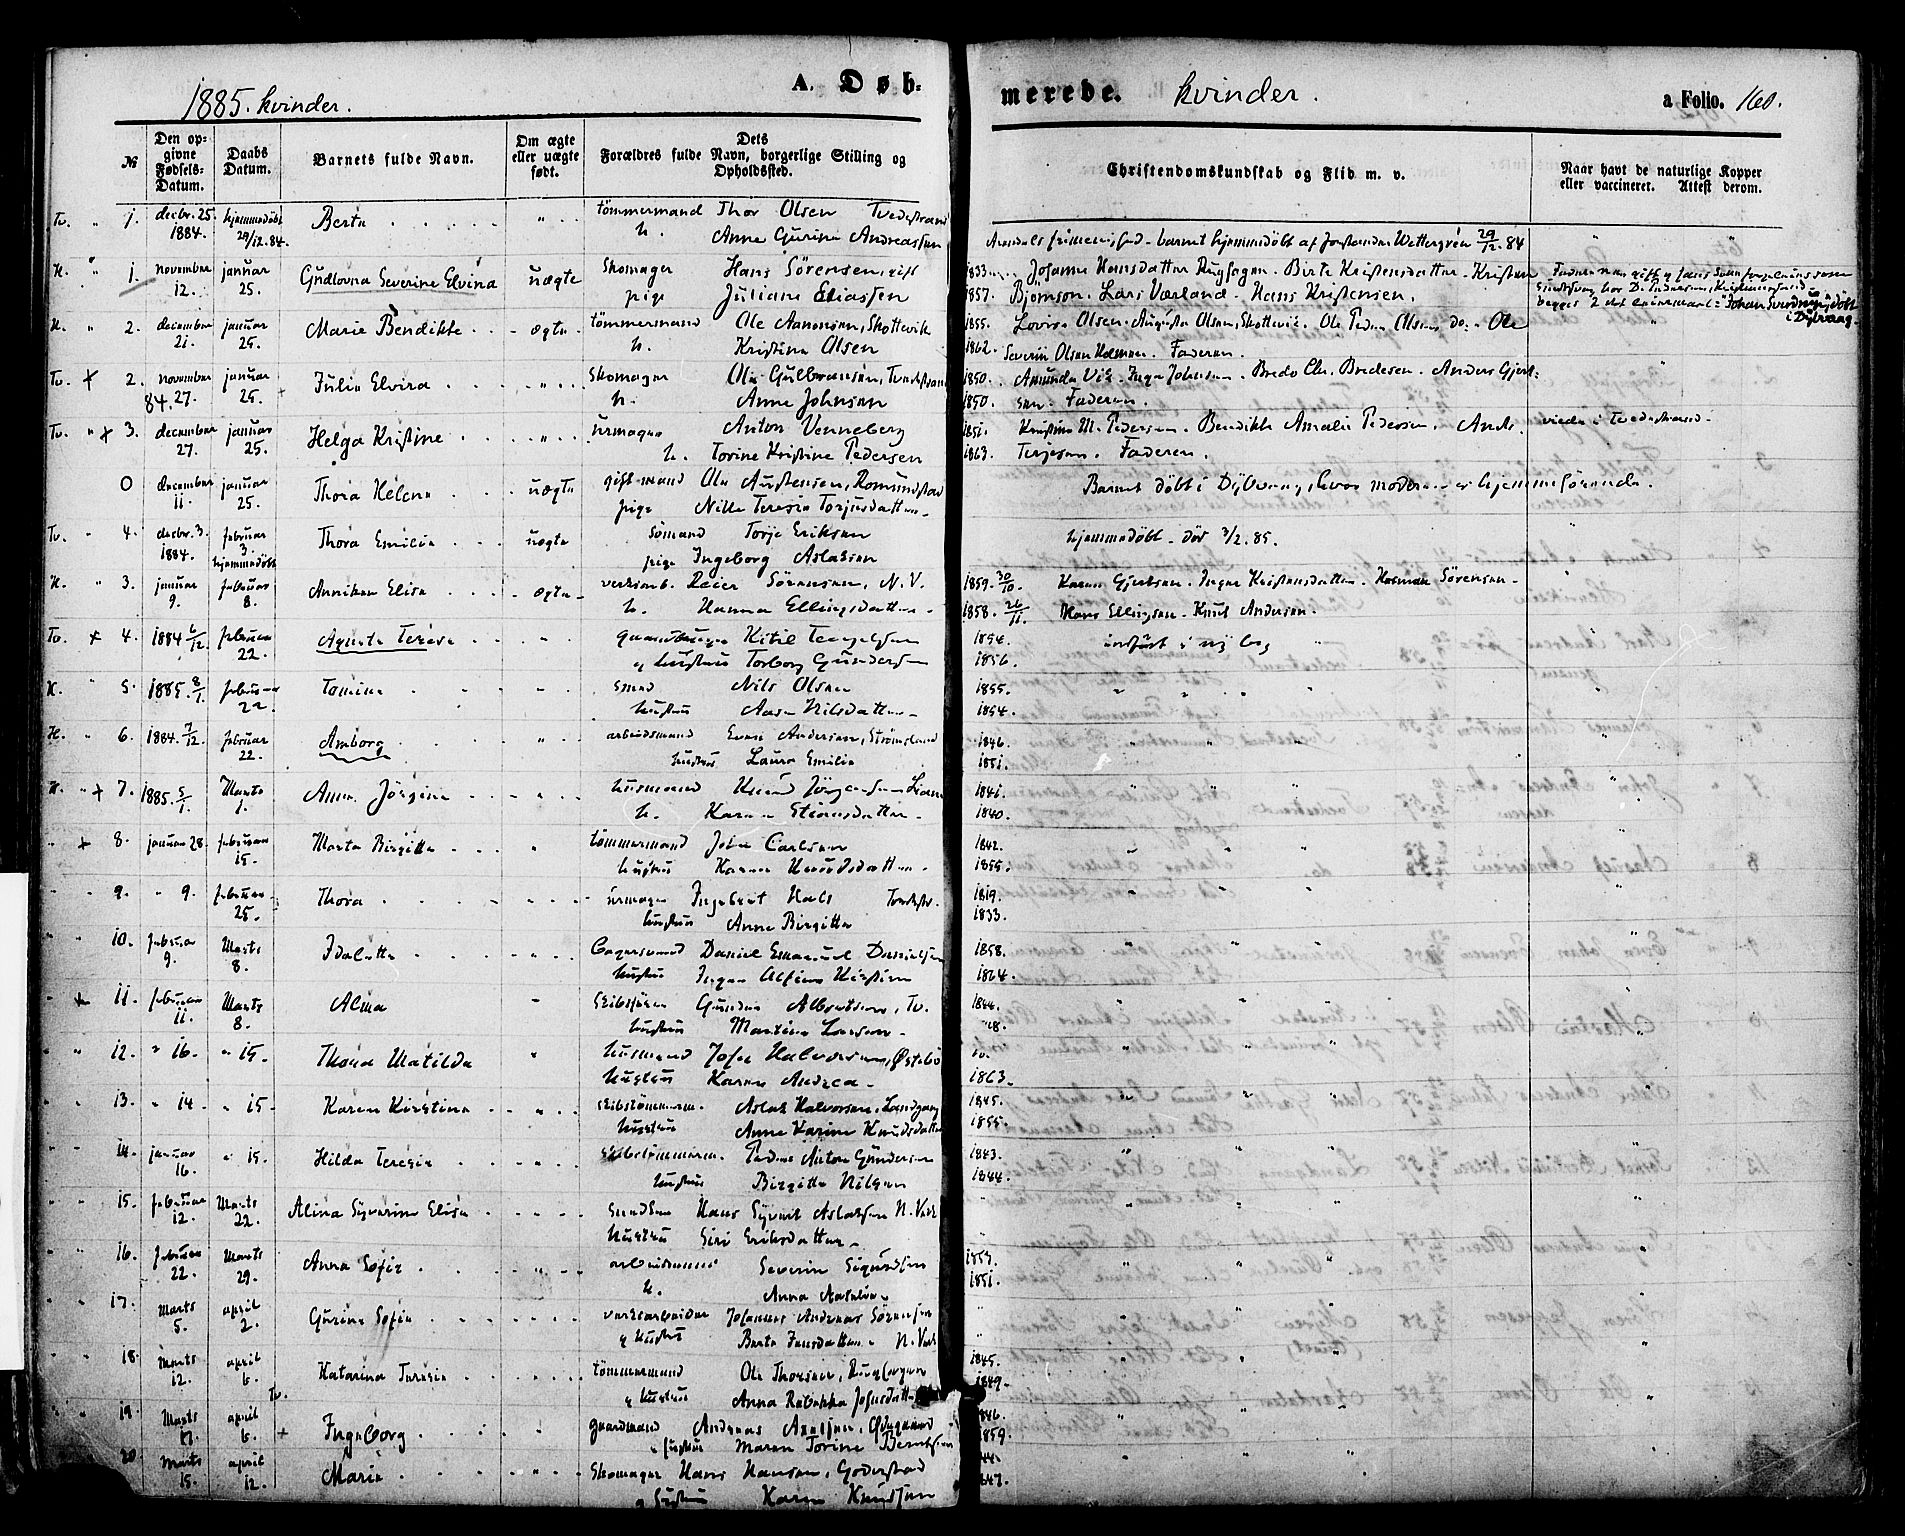 1885. kvinder.
A. Døb-
№
Den op-
givne
Fødsels-
Datum.
Daabs
Datum.
Barnets fulde Navn.
Om ægte
eller uægte
født.
Dets
Forældres fulde Navn, borgerlige Stilling og
Opholdssted.
Tv. " 1. decbr. 25. 1884. hjemmedøbt 29/12.84. Berta " tömmermand Thor Olsen Tvedestrand
h. Anne Gurine Andreassen
H. " 1. november 12. januar 25. Gudlovna Severine Elvina uægte Skomager Hans Sörensen, gift
pige Juliane Eliassen
H. " 2. december 21. januar 25. Marie Bendikte ægte tömmermand Ole Aanonsen, Skottevik
h. Kristine Olsen
Tv. + 2. november 84. 27. januar 25. Julia Elvira " Skomager Ole Gulbransen, Tvedestrand
h. Anne Johnsen
Tv. " + 3. december 27. januar 25. Helga Kristine " urmager Anton Venneberg
h. Torine Kristine Pedersen
0 december 11. januar 25. Thora Helene uægte gift mand Ole Austensen, Romundstad
pige Nille Teresie Torjusdatter
Tv. " 4. decbr. 3. 1884. februar 3. hjemmedöbt Thora Emilie uægte sömand Torje Eriksen
pige Ingeborg Aslaksen
H. " 3. januar 9. februar 8. Anniken Elise ægte verksarb. Reier Sörensen, N. V.
h. Hanna Ellingsdatter
Tv. + 4. 1884 6/12 februar 22. Agusta Terese " Kitil Tengelsen
og hustru Torborg Gundersen
H. " 5. 1885. 8/1. februar 22. Tomine " smed Nils Olsen
hustru Aase Nilsdatter
H. " 6. 1884. 7/12. februar 22. Amborg " arbeidsmand Even Andersen, Strömsland
hustru Laura Emilie
H. " + 7. 1885. 5/1. Marts 1. Anne Jörgine " husmand Knud Jörgensen Liane
h. Karen Stiansdatter
" + 8. januar 28. februar 15. Marta Birgitte " tömmermand John Carlsen
hustru Karen Knudsdatter
" " 9. " 9. februar 25. Thora " urmager Ingebret Hals Tvedestr.
hustru Anne Birgitte
" " 10. februar 9. Marts 8. Idalette Daniel Emanuel Danielsen
hustru Inger Alfine Kirstine
" + 11. februar 11. Marts 8. Alma " Skibsförer Gunder Albretsen, Tv.
hustru Martine Larsen
" " 12. " 16. " 15. Thoma Matilda " husmand Josef Halvorsen, Östebö
hustru Karen Andrea
" " 13. " 14. " 15. Karen Kirstine " skibstömmerm. Aslak Halvorsen, Landgang
hustru Anne Karine Knudsdatter
" " 14. januar 16. " 15. Hilda Teresie " skibstömmerm. Peder Anton Gundersen
hustru Birgitte Nilsen
" " 15. februar 12. Marts 22. Alina Syverine Elise Hans Syvert Aslaksen N. Verk
hustru Siri Eriksdatter
" " 16. februar 22. Marts 29. Anna Sofie " arbeidsmand Severin Sigurdsen
h. Anna
" " 17. Marts 5. april 2. Gurine Sofie verksarbeider Johannes Andreas Sörensen
og hustru Berte Jensdatter N. Verk
" " 18. Marts 12. april 6. Katarina Teresie tömmermand Ole Thorsen, Rugsfagen
og hustru Anna Rebekka Johnsdatter
Tv.
19. Marts 17. april 6. + Ingeborg " gaardmand Andreas Axelsen
hustru Maren Torine Berntsen
20. Marts 15. april 12. Marie " Skomager Hans Hansen, Goderstad
og hustru Karen Knudsen
merede. kvinder.
a Folio. 160.
Christendomskundskab og Flid m. v.
Naar havt de naturlige Kopper
eller vaccineret. Attest derom.
Arendals frimenighed - barnet hjemmedöbt af forstander Wettergren 29/12.84
1833. Johanne Hansdatter Rugfagen. Birte Kristensdatter. Kristen
1857. Björnson. Lars Værland. Hans Kristensen.
Johan Sverdrup, döbt
i Dybvaag.
1855. Lovise Olsen. Augusta Olsen, Skottevik. Ole Peder Olsen, do. Ole
1862. Severin Olsen Holmen. Faderen.
1850. Amunda Vik. Inga Johnsen. Bredo Chr. Bredesen. Anders Gjert-
1850. sen. Faderen.
1851. Kristine M. Pedersen. Bendikte Amalie Pedersen. And. viede i Tvedestrand.
1863. Terjesen. Faderen.
Barnet döbt i Dybvaag, hvor moderen er hjemmehörende.
hjemmedöbt. död 3/2.85.
1859. 30/10. Karen Gjertsen. Inger Kristensdatter. Sörensen
1858. 26/11. Hans Ellingsen. Knut Andersen.
1854. indfört i ny bog
1856.
1855. " " "
1854.
1846. " " "
1851.
1841. " " "
1840.
1842. " " "
1855.
1819. " " "
1833.
1858. " " "
1864.
1844. " " "
48.
1863.
1845. " " "
1855.
1843. " " "
1844.
1853.
1851.
1845.
1849.
1846.
1859.
47.